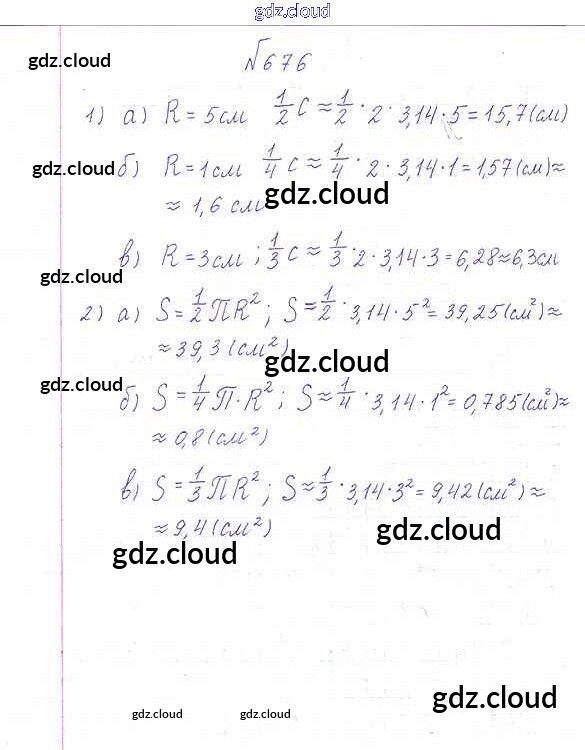 gdz.cloud
gdz.cloud
№676
1) а) R = 5см 1/2 С ≈ 1/2 · 2 · 3,14 · 5 = 15,7 (см)
gdz.cloud б) R = 1см 1/4 С ≈ 1/4 · 2 · 3,14 · 1 = 1,57 (см) ≈
≈ 1,6 см gdz.cloud
в) R = 3см ; 1/3 С ≈ 1/3 · 2 · 3,14 · 3 = 6,28 ≈ 6,3см
gdz.cloud
2) а) S = 1/2 ПR² ; S ≈ 1/2 · 3,14 · 5² = 39,25 (см²) ≈
≈ 39,3 (см²) gdz.cloud
gdz.cloud
б) S = 1/4 П · R² ; S ≈ 1/4 · 3,14 · 1² = 0,785 (см²) ≈
≈ 0,8 (см²)
в) S = 1/3 ПR² ; S ≈ 1/3 · 3,14 · 3² = 9,42 (см²) ≈
≈ 9,4 (см²) gdz.cloud
gdz.cloud
gdz.cloud
gdz.cloud gdz.cloud